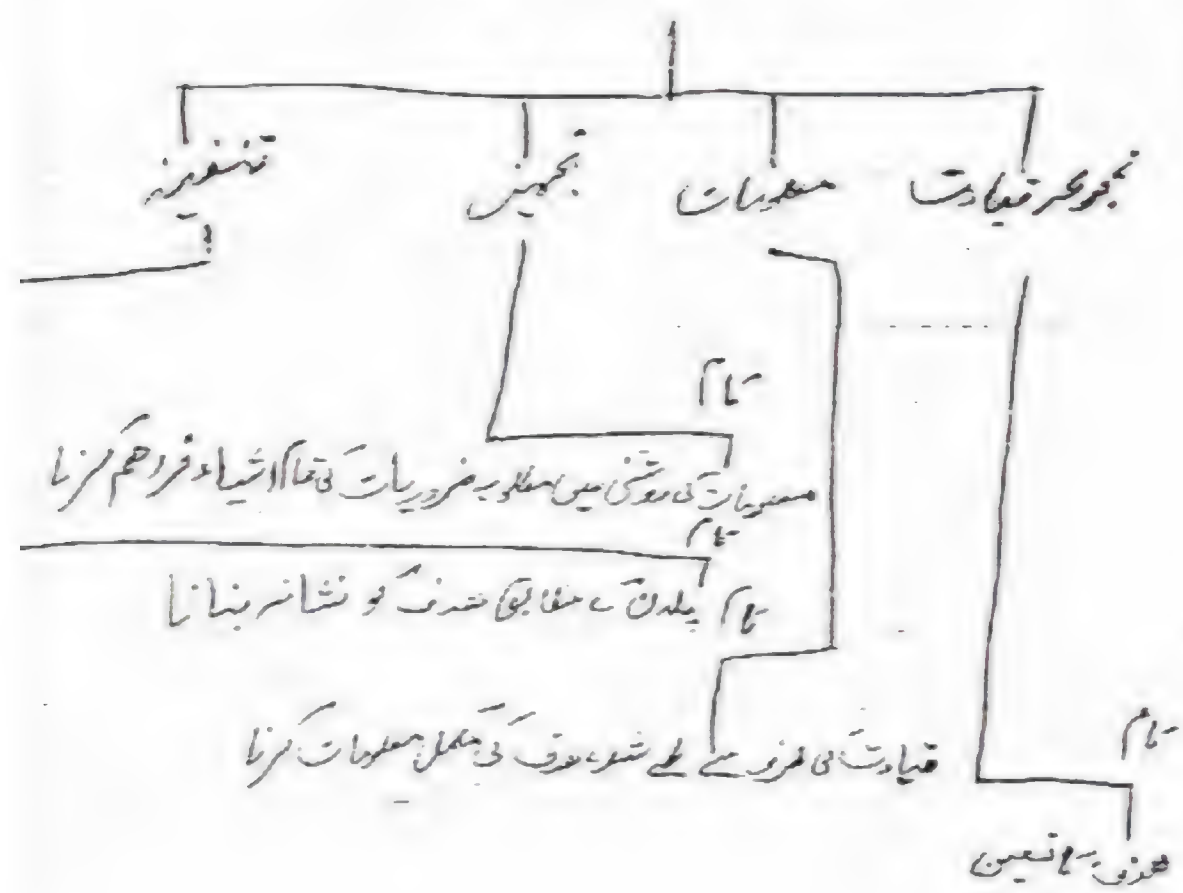 مجموعہ قیادت
معلومات
تجہیز
تنفیذ
کام
معلومات کی روشنی میں مطلوبہ ضروریات کی تمام اشیاء فراھم کرنا
کام
پلان کے مطابق ھدف کو نشانہ بنانا
کام
قیادت کی طرف سے طے شدہ ھدف کی مکمل معلومات کرنا
کام
ھدف کا تعین